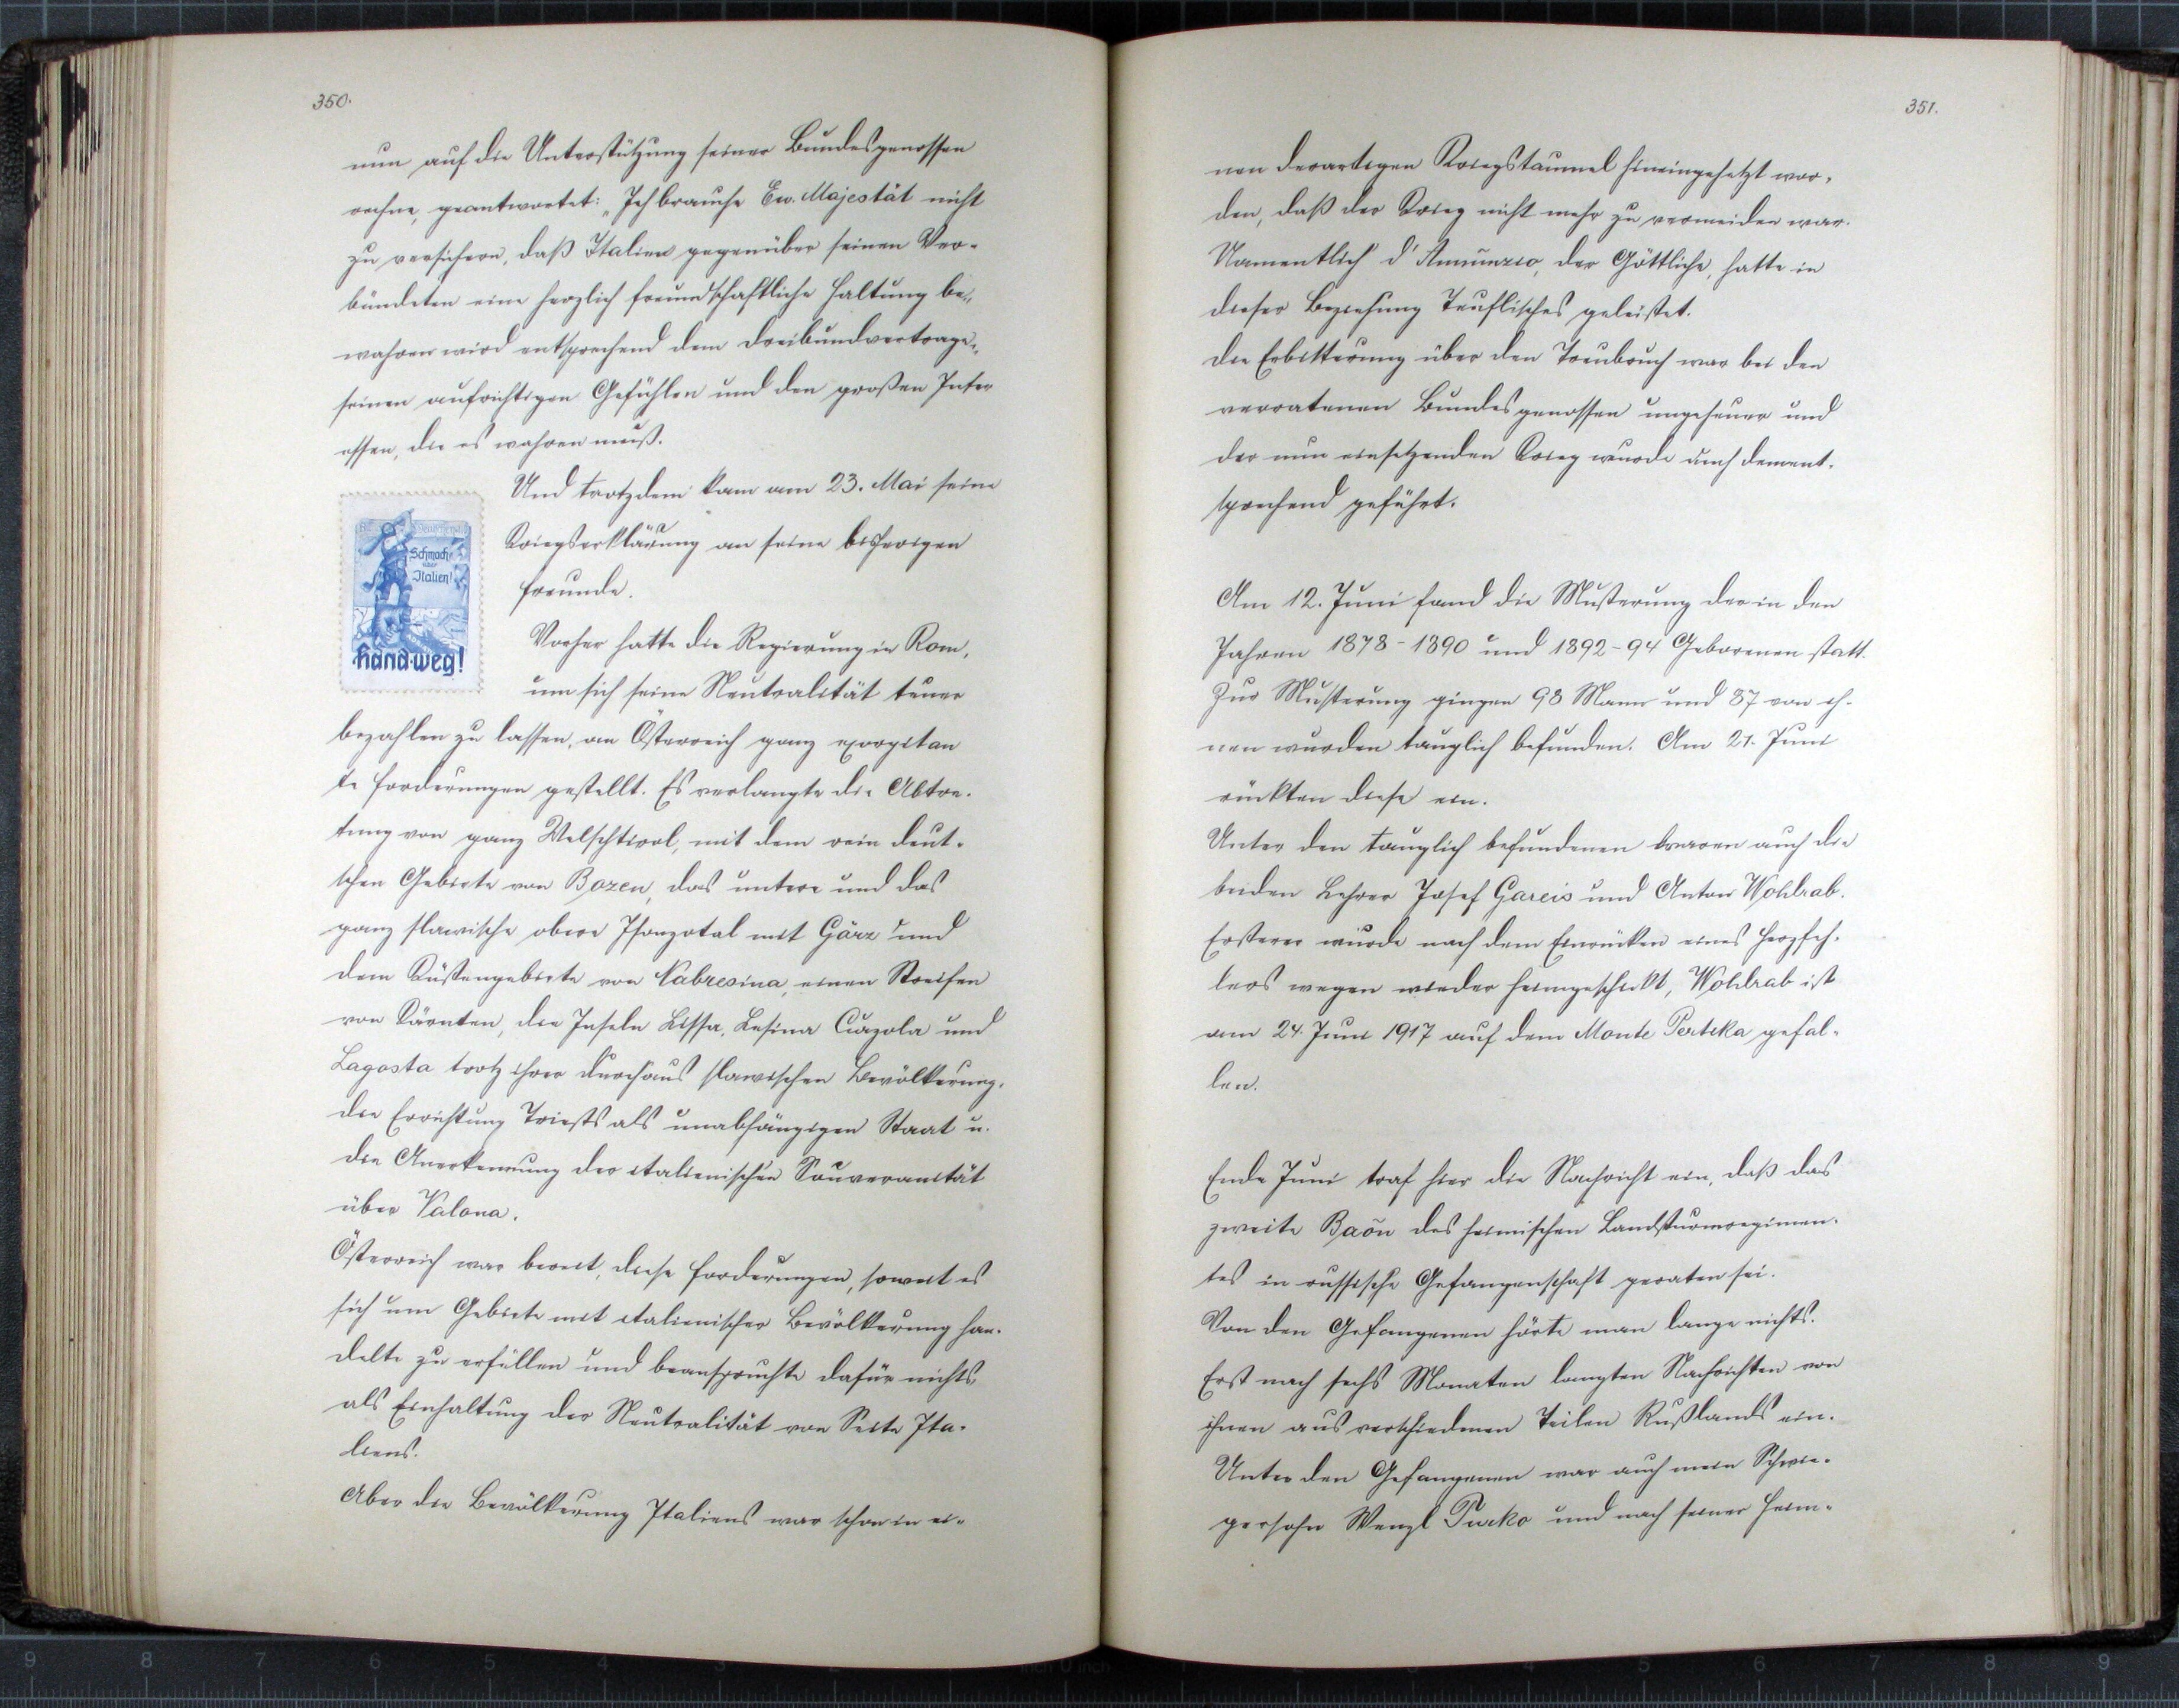 350.
nun auf die Unterstützung seiner Bundesgenossen
rechne, geantwortet: „Ich brauche Ew. Majestät nicht
zu versichern, daß Italien gegenüber seinen Ver-
bündeten eine herzlich freundschaftliche Haltung be-
wahren wird entsprechend dem Dreibundvertrage,
seinen aufrichtigen Gefühlen und den großen Inter
essen, die es wahren muß.
Und trotzdem kam am 23. Mai seine
Kriegserklärung an seine bisherigen
Freunde.
Schmach
über
Italien!
Hand weg!
Vorher hatte die Regierung in Rom,
um sich seine Neutralität teuer
bezahlen zu lassen, an Österreich ganz exorbitan
te Forderungen gestellt. Es verlangte die Abtre-
tung von ganz Welschtirol, mit dem rein deut-
schen Gebiete von Bozen, das untere und das
ganz slawische obere Isonzotal mit Görz und
dem Küstengebiete von Nabresina, einen Streifen
von Kärnten, die Inseln Lissa, Lesina Curzola und
Lagosta trotz ihrer durchaus slawischen Bevölkerung,
die Errichtung Triests als unabhängigen Staat u.
die Anerkennung der italienischen Souveranität
über Valona.
Österreich war bereit, diese Forderungen, soweit es
sich um Gebiete mit italienischer Bevölkerung han-
delte zu erfüllen und beanspruchte dafür nichts,
als Einhaltung der Neutralität von Seite Ita-
liens.
Aber die Bevölkerung Italiens war schon in ei-
351.
nen derartigen Kriegstaumel hineingehetzt wor-
den, daß der Krieg nicht mehr zu vermeiden war.
Namentlich d'Annunzio, der Göttliche, hatte in
dieser Beziehung Teuflisches geleistet.
Die Erbitterung über den Treubruch war bei den
verratenen Bundesgenossen ungeheuer und
der nun einsetzenden Krieg wurde auch dement-
sprechend geführt.
Am 12. Juni fand die Musterung der in den
Jahren 1878-1890 und 1892-94 Geborenen statt.
Zur Musterung gingen 98 Mann und 87 von ih-
nen wurden tauglich befunden. Am 21. Juni
rückten diese ein.
Unter den tauglich befundenen waren auch die
beiden Lehrer Josef Gareis und Anton Wohlrab.
Ersterer wurde nach dem Einrücken eines Herzfeh-
lers wegen wieder heimgeschickt, Wohlrab ist
am 24. Juni 1917 auf dem Monte Pertika gefal-
len.
Ende Juni traf hier die Nachricht ein, daß das
zweite Baōn des heimischen Landsturmregimen-
tes in russische Gefangenschaft geraten sei.
Von den Gefangenen hörte man lange nichts.
Erst nach sechs Monaten langten Nachrichten von
ihnen aus verschiedenen Teilen Rußlands ein.
Unter den Gefangenen war auch mein Schwie-
gersohn Wenzl Turko und nach seiner Heim-